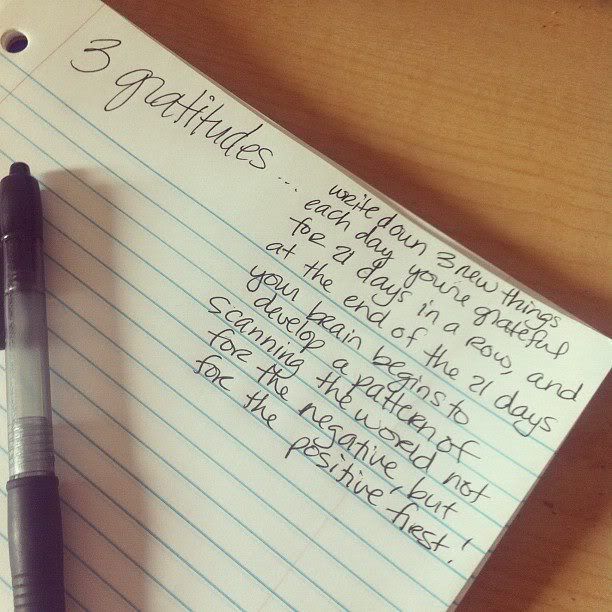 3 gratitudes...
write down 3 new things
each day you're grateful
for 21 days in a row, and
at the end of the 21 days
your brain begins to
develop a pattern of
scanning the world not
for the negative, but
for the positive first!